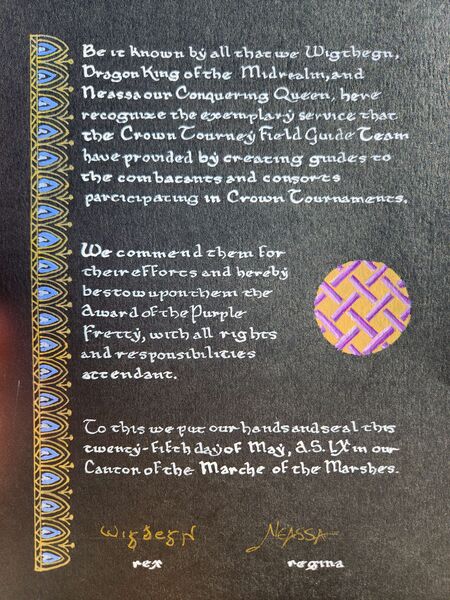 Be it known by all that we Wigthegn,
Dragon King of the Midrealm, and
Neassa our Conquering Queen, here
recognize the exemplary service that
the Crown Tourney Field Guide Team
have provided by creating guides to
the combatants and consorts
participating in Crown Tournaments.
We commend them for
their efforts and hereby
bestow upon them the
Award of the Purple
Fretty, with all rights
and responsibilities
attendant.
To this we put our hands and seal this
twenty-fifth day of May, A.S. LX in our
Canton of the Marche of the Marshes.
Wigðegn NEASSA
rex regina